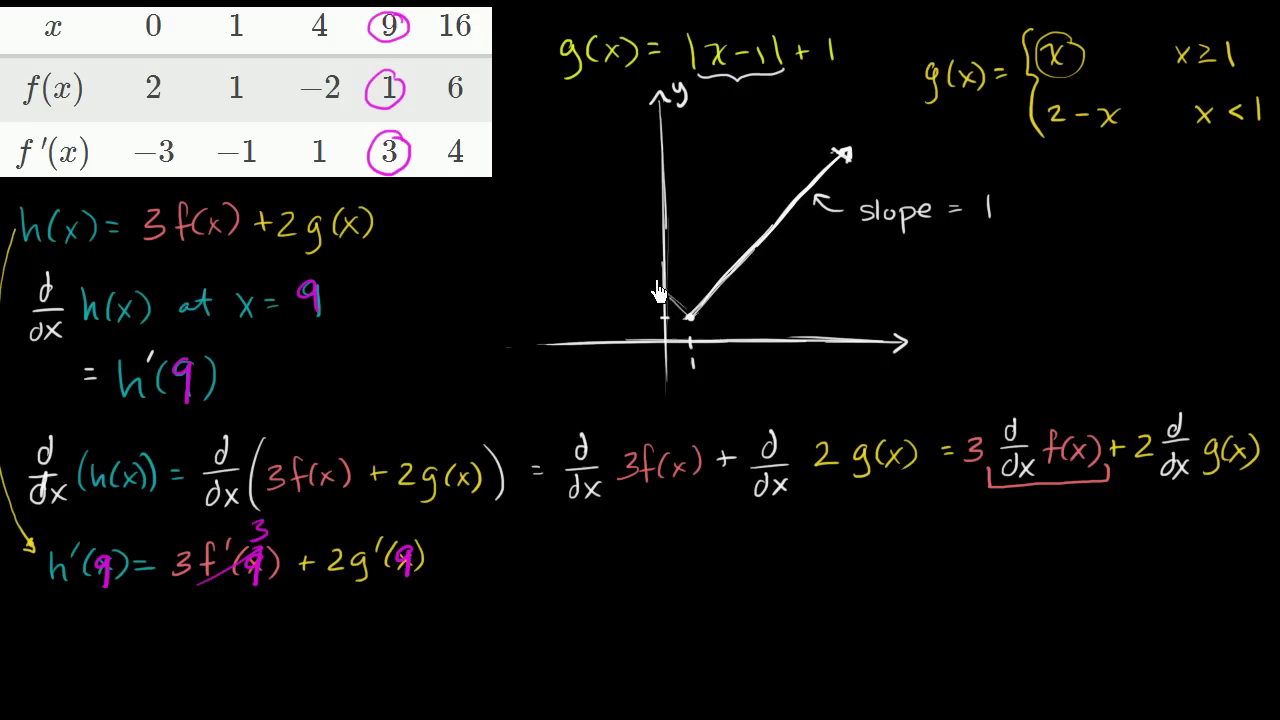 x 0 1 4 9 16
f(x) 2 1 −2 1 6
f′(x) −3 −1 1 3 4
g(x) = |x-1| + 1
g(x) = { x x ≥ 1
2 - x x < 1
y
slope = 1
1
h(x) = 3f(x) + 2g(x)
d/dx h(x) at x = 9
= h'(9)
d/dx (h(x)) = d/dx (3f(x) + 2g(x)) = d/dx 3f(x) + d/dx 2g(x) = 3 d/dx f(x) + 2 d/dx g(x)
3
h'(9) = 3f'(9) + 2g'(9)